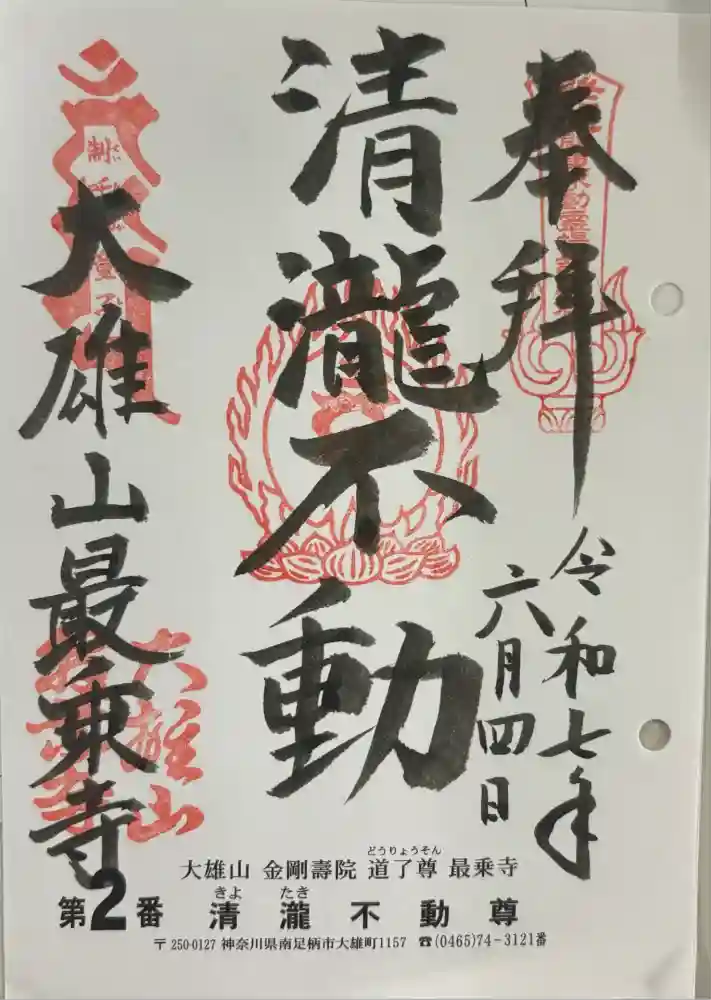 奉拝
令和七年
六月四日
清瀧不動
大雄山最乗寺
大雄山
どうりょうそん
大雄山 金剛壽院 道了尊 最乗寺
きよ たき
第2番 清瀧不動尊
〒250-0127 神奈川県南足柄市大雄町1157 ☎(0465)74-3121番